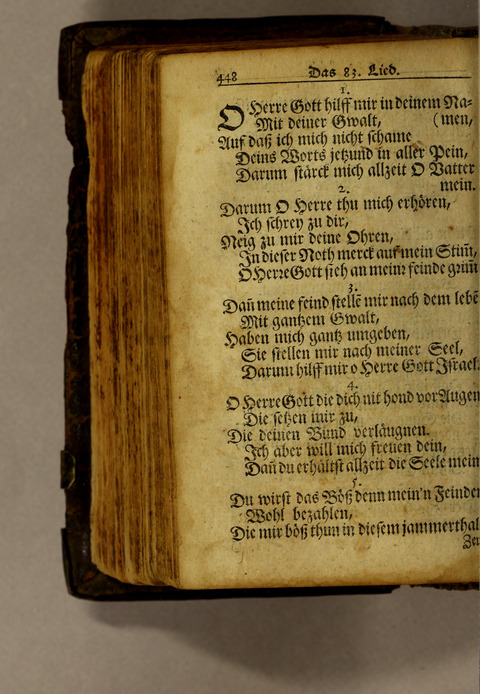 448 Das 83. Lied.
1.
O Herre Gott hilff mir in deinem Na-
Mit deiner Gwalt, (men,
Auf daß ich mich nicht schame
Deins Worts jetzund in aller Pein,
Darum stärck mich allzeit O Vatter
mein.
2.
Darum O Herre thu mich erhören,
Ich schrey zu dir,
Neig zu mir deine Ohren,
In dieser Noth merck auf mein Stim̃,
O Herre Gott sieh an meinr feinde grim̃
3.
Dañ meine feind stellẽ mir nach dem lebẽ
Mit gantzem Gwalt,
Haben mich gantz umgeben,
Sie stellen mir nach meiner Seel,
Darum hilff mir o Herre Gott Israel.
4.
O Herre Gott die dich nit hond vor Augen
Die setzen mir zu,
Die deinen Bund verläugnen.
Ich aber will mich freuen dein,
Dañ du erhältst allzeit die Seele mein
5.
Du wirst das Böß denn mein'n Feinden
Wohl bezahlen,
Die mir böß thun in diesem jammerthal
Zer